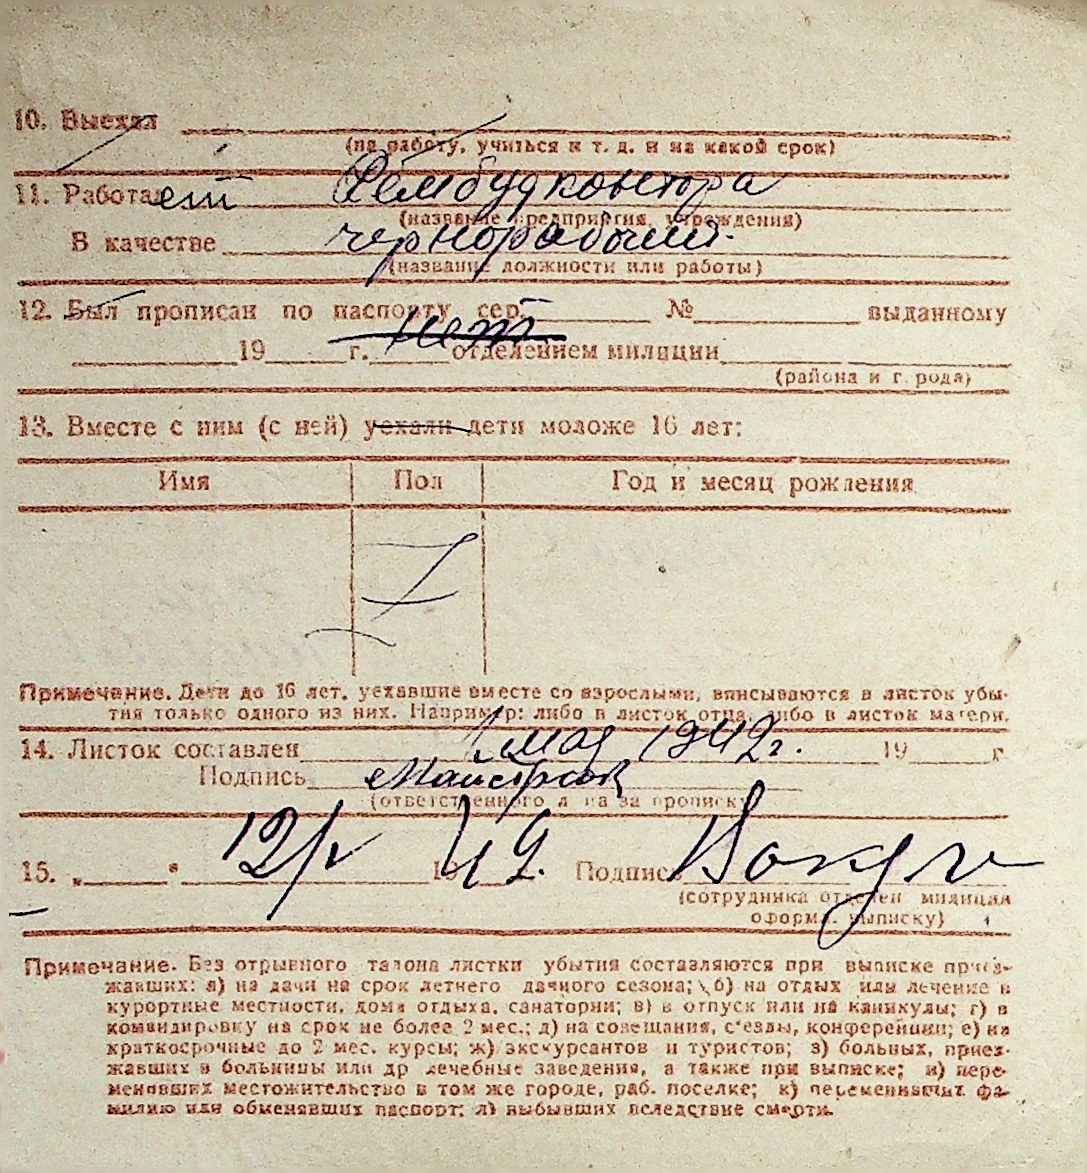 10. Выехал
(на работу, учиться и т. д. и на какой срок)
11. Работает Рембудконтора
(название предприятия, учреждения)
В качестве чернорабочий.
(название должности или работы)
12. Был прописан по паспорту сер. № выданному
нет
19 г. отделением милиции
(района и города)
13. Вместе с ним (с ней) уехали дети моложе 16 лет:
Имя Пол Год и месяц рождения
Примечание. Дети до 16 лет, уехавшие вместе со взрослыми, вписываются в листок убы-
тия только одного из них. Например: либо в листок отца, либо в листок матери.
14. Листок составлен мая 1942 г. 19 г
Подпись
(ответственного лица за прописку)
15. „ " 12/V 42. Подпись
(сотрудника отделен милиции
оформ. выписку)
Примечание. Без отрывного талона листки убытия составляются при выписке приез-
жавших: а) на дачи на срок летнего дачного сезона; б) на отдых или лечение в
курортные местности, дома отдыха, санатории; в) в отпуск или на каникулы; г) в
командировку на срок не более 2 мес.; д) на совещания, с'езды, конференции; е) на
краткосрочные до 2 мес. курсы; ж) экскурсантов и туристов; з) больных, приез-
жавших в больницы или др лечебные заведения, а также при выписке; и) пере-
менивших местожительство в том же городе, раб. поселке; к) переменивших фа-
милию или обменявших паспорт; л) выбывших вследствие смерти.